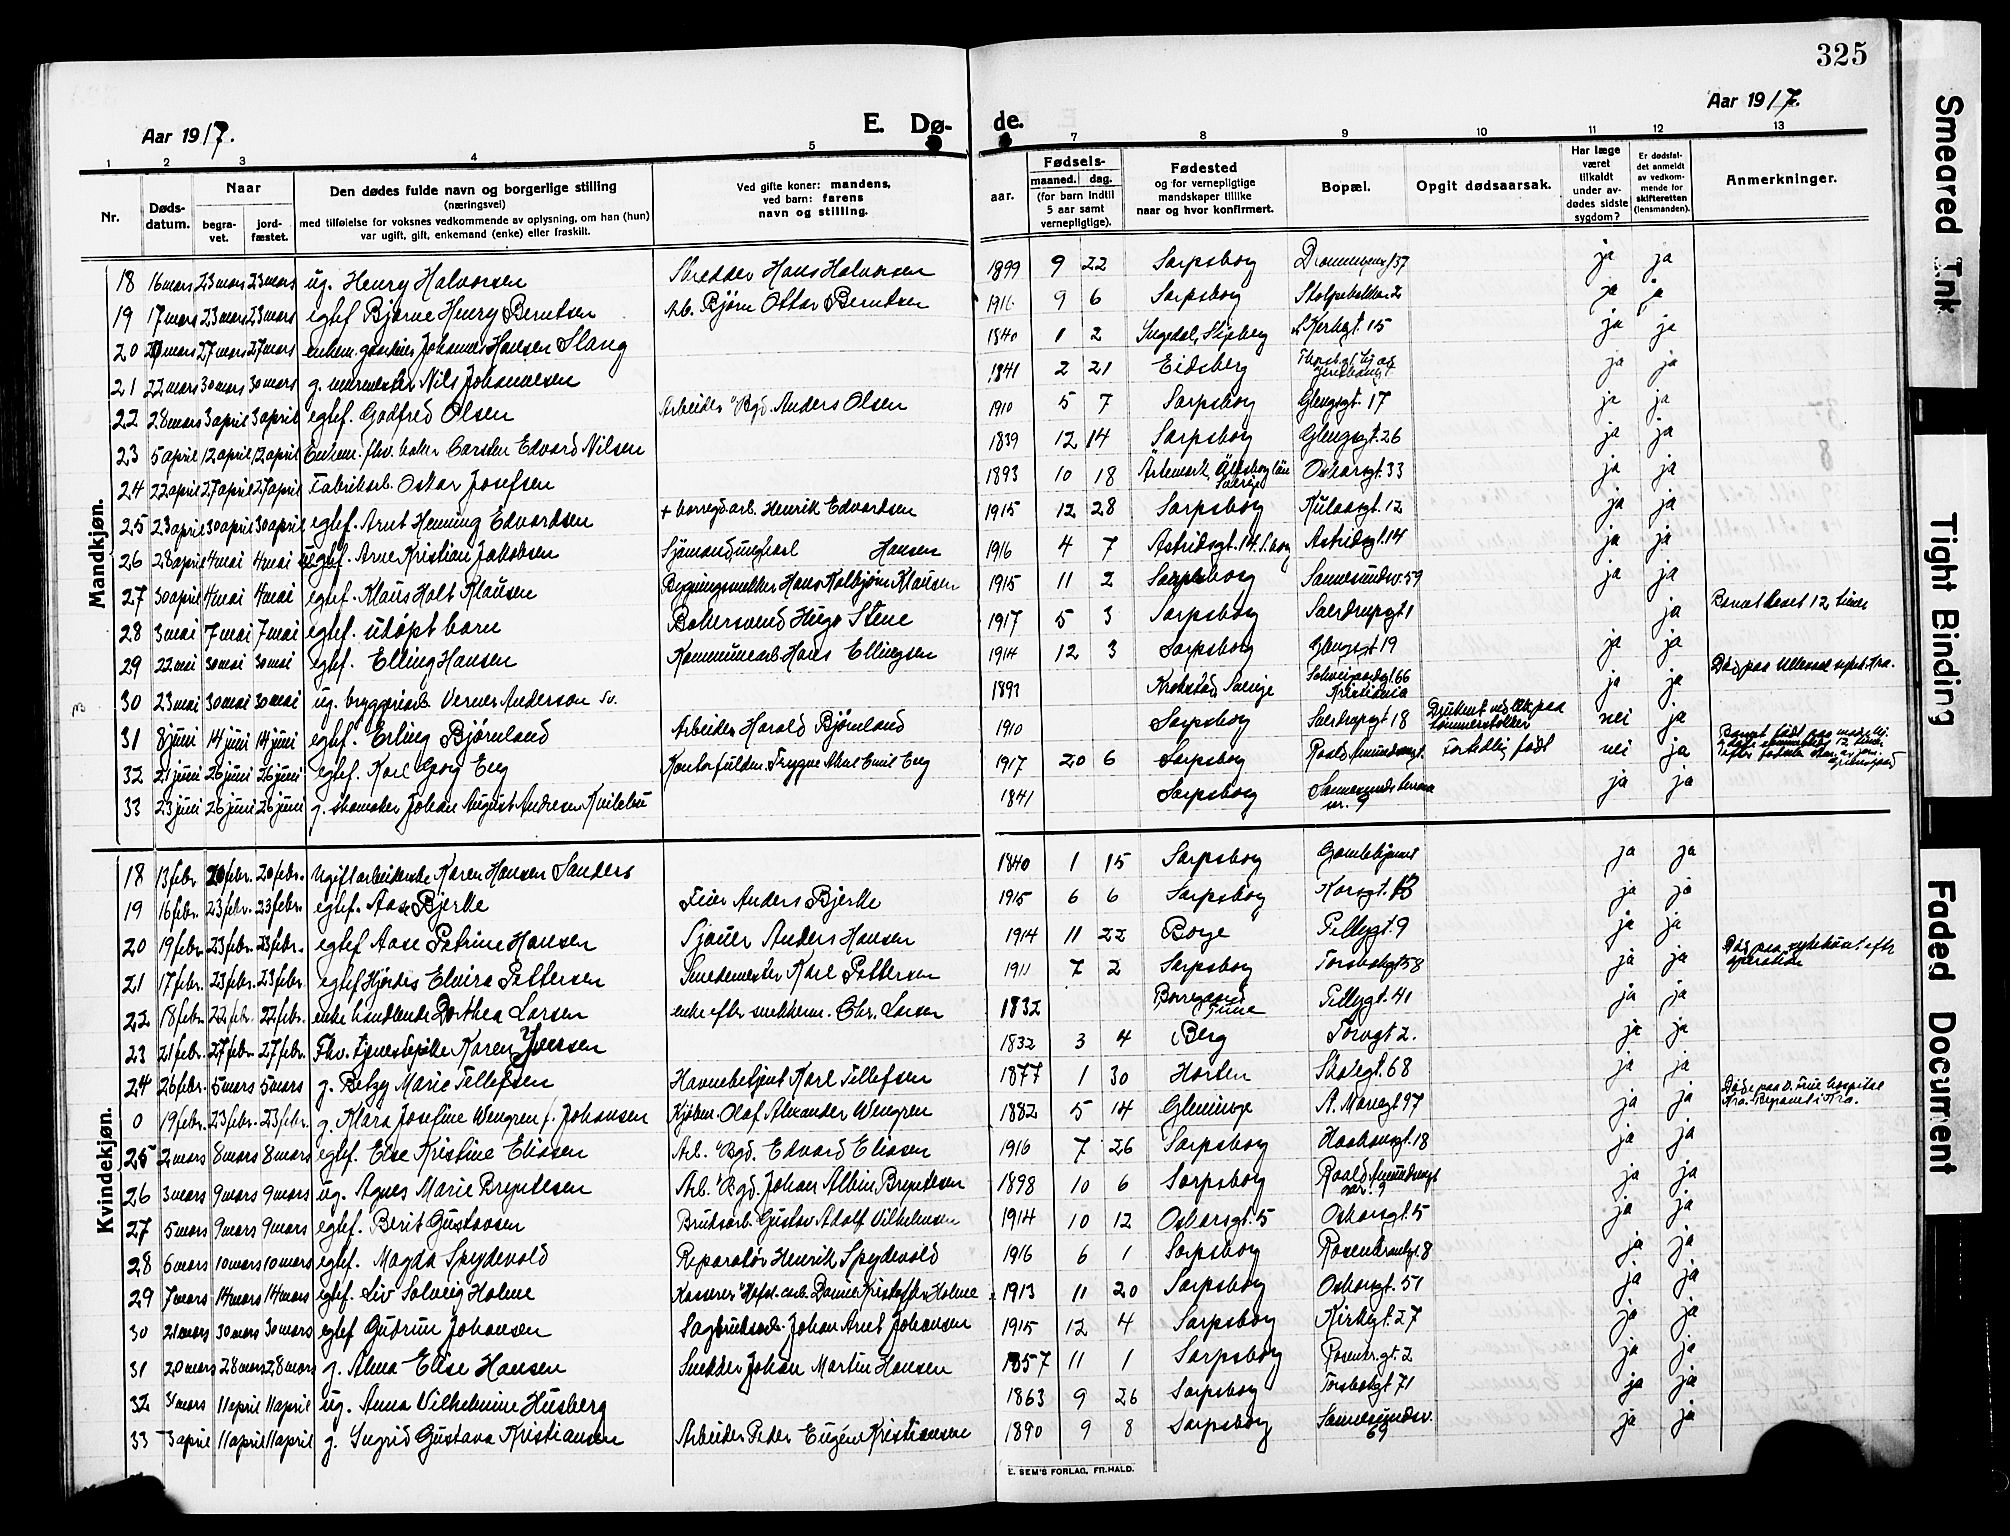 325
Aar 1917.
E. Dø-
de.
Aar 1917.
1 2 3 4 5 7 8 9 10 11 12 13
Nr.
Døds-
datum.
Naar
begra-
vet.
jord-
fæstet.
Den dødes fulde navn og borgerlige stilling
(næringsvei)
med tilføielse for voksnes vedkommende av oplysning, om han (hun)
var ugift, gift, enkemand (enke) eller fraskilt.
Ved gifte koner: mandens,
ved barn: farens
navn og stilling.
aar.
Fødsels-
maaned. dag.
(for barn indtil
5 aar samt
vernepligtige).
Fødested
og for vernepligtige
mandskaper tillike
naar og hvor konfirmert.
Bopæl.
Opgit dødsaarsak.
Har læge
været
tilkaldt
under av-
dødes sidste
sygdom?
Er dødsfal-
det anmeldt
av vedkom-
mende for
skifteretten
(lensmanden).
Anmerkninger.
Mandkjøn.
18 16 mars 23 mars 23 mars ug. Henry Halvorsen Skredder Hans Halvorsen 1899 9 22 Sarpsborg ja ja
19 17 mars 23 mars 23 mars egtef Bjarne Henry Berntsen Arb. Bjørn Ottar Berntsen 1916 9 6 Sarpsborg ja ja
20 mars 27 mars 27 mars enkem. Johannes Hansen Slang 1840 1 2 Kirkegt. 15 ja ja
21 22 mars 30 mars 30 mars g. murmester Nils Johannesen 1841 2 21 Eidsberg ja ja
22 28 mars 3 april 3 april egtef. Godfred Olsen Arbeider Bgd. Anders Olsen 1910 5 7 Sarpsborg Glengsgt. 17 ja ja
23 5 april 12 april 12 april Enkem. fhv. baker Carsten Edvard Nilsen 1839 12 14 Sarpsborg Glengsgt. 26 ja ja
24 22 april 27 april 27 april Fabrikarb. Oskar Josefsen 1893 10 18 Ärtemark Älvsborg län Sverige Oskarsgt. 33 ja ja
25 23 april 30 april 30 april egtef. Arnt Henning Edvardsen + borregdarb. Henrik Edvardsen 1915 12 28 Sarpsborg Kulaasgt. 12 ja ja
26 28 april 4 mai 4 mai uegtef. Arne Kristian Jakobsen Sjømand, ungkarl Hansen 1916 4 7 Astridsgt. 14. S.borg Astridsgt. 14 ja ja
27 30 april 4 mai 4 mai egtef. Klaus Holt Klausen Bygningssnekker Hans Kolbjørn Klausen 1915 11 2 Sarpsborg Sannesundsv. 59 ja ja
28 3 mai 7 mai 7 mai egtef. udøpt barn Bakersvend Hugo Stene 1917 5 3 Sarpsborg ja Barnet levet 12 timer
29 22 mai 30 mai 30 mai egtef. Elling Hansen Kommunearb Hans Ellingsen 1914 12 3 Sarpsborg Glengsgt 19 ja ja
30 23 mai 30 mai 30 mai ug. bryggeriarb. Verner Anderson sv. 1893 Krokstad Sverige Schweigaardsgt. 66 Kristiania ja ja Død paa Ullevaal sykeh. Kra.
31 8 juni 14 juni 14 juni egtef. Erling Bjørnland Arbeider Harald Bjørnland 1910 Sarpsborg 18 Druknet ved lek paa tømmerstokker nei ja
32 21 juni 26 juni 26 juni egtef. Karl Georg Eeg Kontorfuldm. Trygve Emil Eeg 1917 20 6 Sarpsborg Roald Amundsensgt. For tidlig født nei ja
33 23 juni 26 juni 26 juni g. skomaker Johan August Andresen Kvilebu 1841 Sarpsborg ja ja
Kvindekjøn.
18 13 febr. 20 febr. 20 febr. Ugift arbeiderske Karen Hansen Sanders 1840 1 15 Sarpsborg Gamlehjemmet ja ja
19 16 febr. 23 febr. 23 febr. egtef. Aase Bjerke Feier Anders Bjerke 1915 6 6 Sarpsborg Korsgt. 13 ja ja
20 19 febr. 23 febr. 23 febr. egtef Aase Petrine Hansen Sjauer Anders Hansen 1914 11 22 Borge Pellygt. 9 ja ja
21 17 febr. 23 febr. 23 febr. egtef Hjørdis Elvira Pettersen Smedemester Karl Pettersen 1911 7 2 Sarpsborg Torsbekgt 58 ja ja Død paa sykehuset efter operation
22 18 febr. 22 febr. 22 febr. enke handlende Dorthea Larsen enke efter snekkerm. Chr. Larsen 1832 Borregaard Tune Pellygt. 41 ja ja
23 21 febr. 27 febr. 27 febr. Fhv. tjenestepike Karen Iversen 1832 3 4 Berg Torvgt 2. ja ja
24 26 febr. 5 mars 5 mars g. Betzy Marie Tellefsen Havnebetjent Karl Tellefsen 1877 1 30 Horten Skolegt. 68 ja ja
0 19 febr. 23 febr. 23 febr. g. Klara Josefine Wengren f. Johansen Kjøbm. Olaf Alexander Wengren 1882 5 14 Glemminge A. Mariegt 97 ja ja Døde paa V. Frue hospital Kra. Begravet i Kra.
25 2 mars 8 mars 8 mars egtef. Else Kristine Eliasen Arb. Bgd. Edvard Eliasen 1916 7 26 Sarpsborg Haakonsgt. 18 ja ja
26 3 mars 9 mars 9 mars ug. Agnes Marie Bryntesen Arb. Bgd. Johan Albin Bryntesen 1898 10 6 Sarpsborg Roald Amundsensgt nr. 9 ja ja
27 5 mars 9 mars 9 mars egtef. Berit Gustavsen Bruksarb. Gustav Adolf Vilhelmsen 1914 10 12 Oskarsgt. 5 Oskarsgt. 5 ja ja
28 6 mars 10 mars 10 mars egtef. Magda Spydevold Reparatør Henrik Spydevold 1916 6 1 Sarpsborg Rosenkrantzgt. 8 ja ja
29 7 mars 14 mars 14 mars egtef. Liv Solveig Holme Kasserer Kristoffer Holme 1913 11 20 Sarpsborg Oskarsgt. 51 ja ja
30 21 mars 30 mars 30 mars egtef Gudrun Johansen Sagbruksarb. Johan Arnt Johansen 1915 12 4 Sarpsborg Kirkegt. 27 ja ja
31 20 mars 28 mars 28 mars g. Alma Elise Hansen Snekker Johan Martin Hansen 1857 11 1 Sarpsborg Rosenkr.gt. 2 ja ja
32 31 mars 11 april 11 april ug. Anna Vilhelmine Husberg 1863 9 26 Sarpsborg Torsbekgt 71 ja ja
33 3 april 11 april 11 april g. Ingrid Gustava Kristiansen Arbeider Peder Eugén Kristiansen 1890 9 8 Sarpsborg Sannesundsv. 69 ja ja
E. SEM'S FORLAG, FR.HALD.
Smeared Ink
Tight Binding
Faded Document